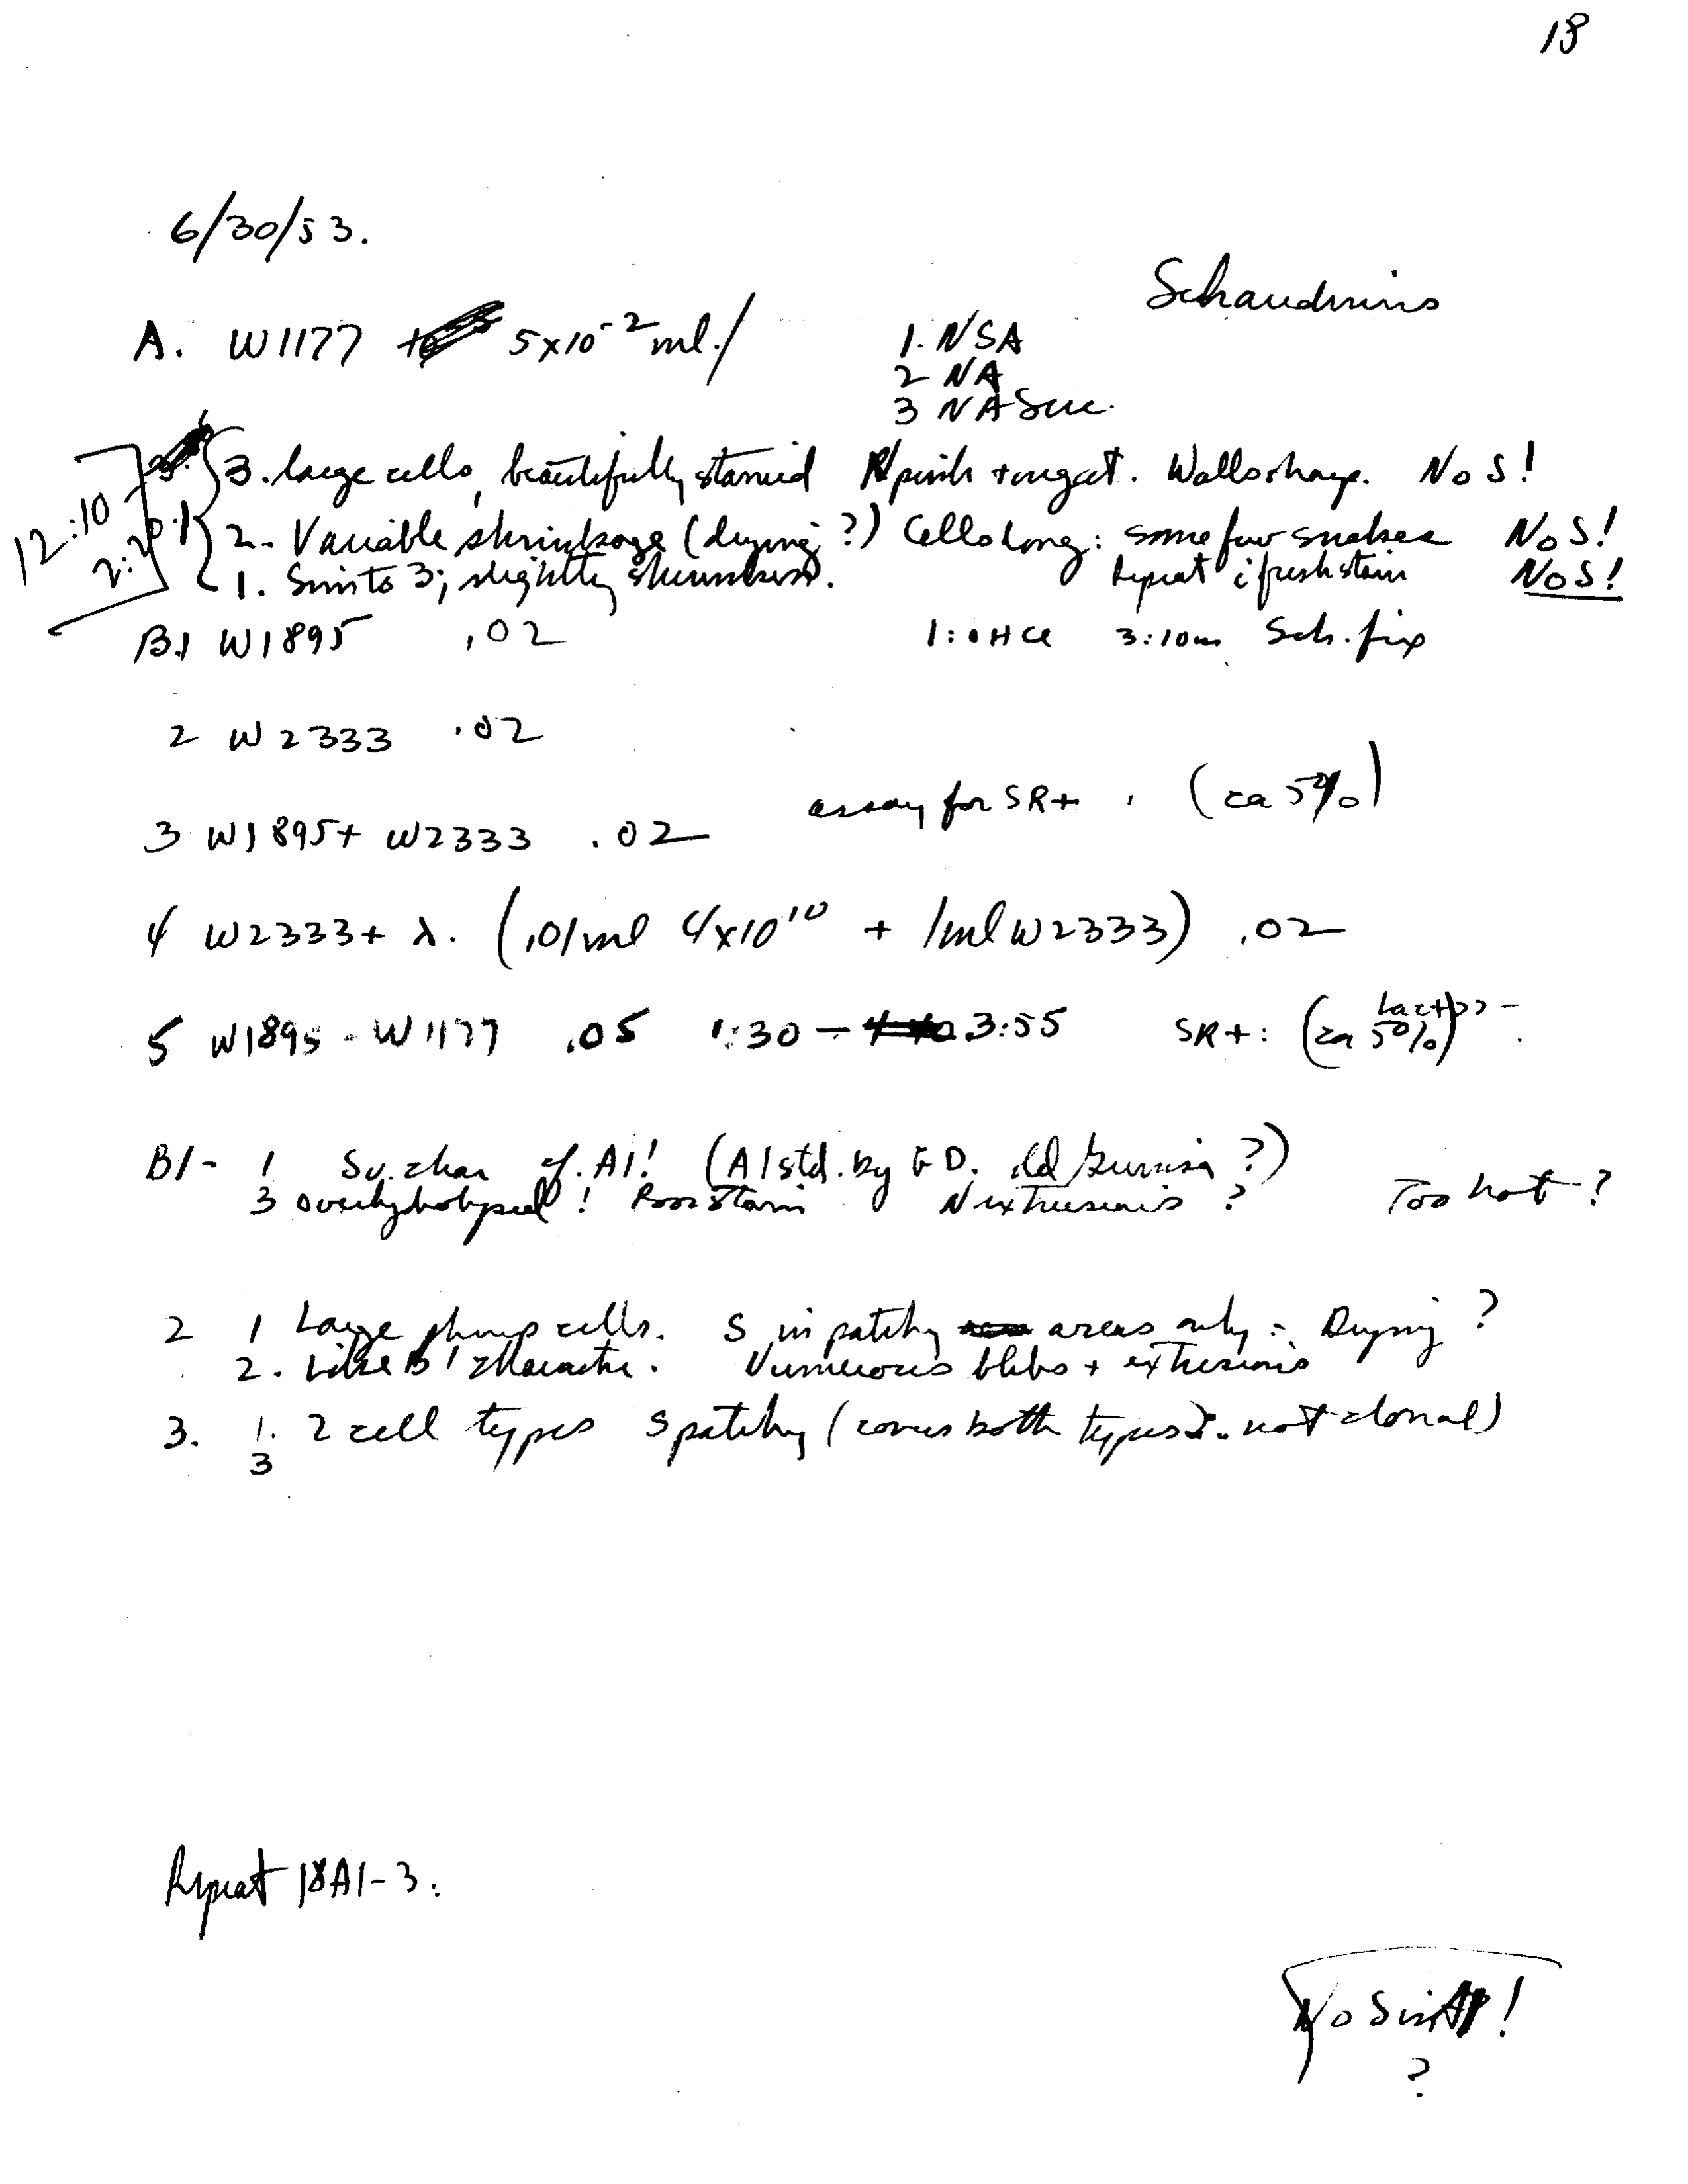 18
6/30/53.
Schaudinns
A. W1177 5x10⁻² ml./
1. NSA
2 NA
3 NASuc.
12:10
3. large cells, beautifully stained N pink + . No S!
2. Variable shrinkage (drying?) Cells long: some few snakes No S!
1. Sim to 3; slightly shrunken. Repeat c̄ fresh stain No S!
B.1 W1895 .02 1:0 HCl 3:10m Sch. fix
2 W2333 .02
assay for SR+ . (ca 5%)
3 W1895+ W2333 .02
4 W2333+ λ. (.01ml 4x10¹⁰ + 1ml W2333) .02
5 W1895 - W1177 .05 1:30 – 3:55 SR+: (ca 5%) Lac+>> -
B1- 1 Sv. char cf. A1! (A1 std. by ED. old Giemsa?)
3 Overhydrolysed! Poor stain N extrusions? Too hot?
2 1 Large plump cells. S in patchy areas only ∴ Drying?
2. Like B1 character. Numerous blebs + extrusions
3. 1. 2 cell types S patchy (covers both types ∴ not clonal)
3
Repeat 18A1-3:
No S in A !
?